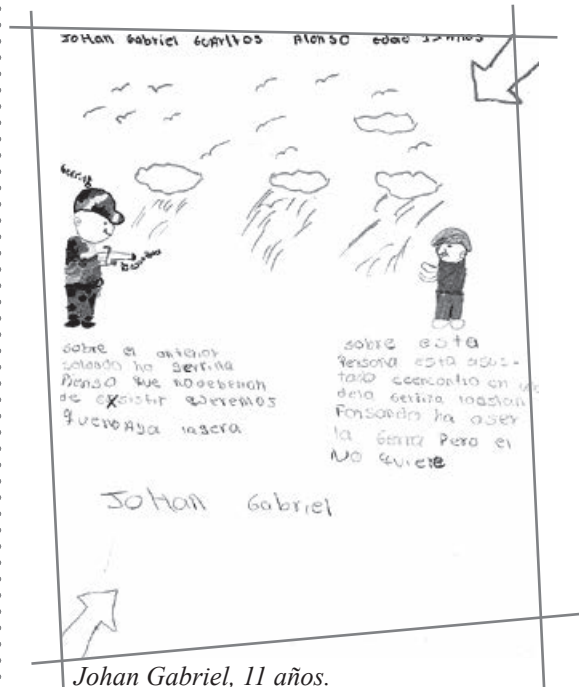 JoHan Gabriel Alonso edad
sobre el anterior
soldado ha
Pienso que nodebenan
de exsistir queremos
quenoAga
sobre esta
Persona esta asus-
tado ceencontro en
dela loestan
Forsando ha aser
la Gerra Pero el
No quiere
JoHan Gabriel
Johan Gabriel, 11 años.